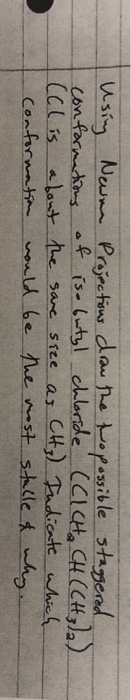 Using Newman Projections draw the two possible staggered
conformations of isobutyl chloride (ClCH2 CH(CH3)2)
(Cl is about the same size as CH3) Indicate which
conformation would be the most stable & why.